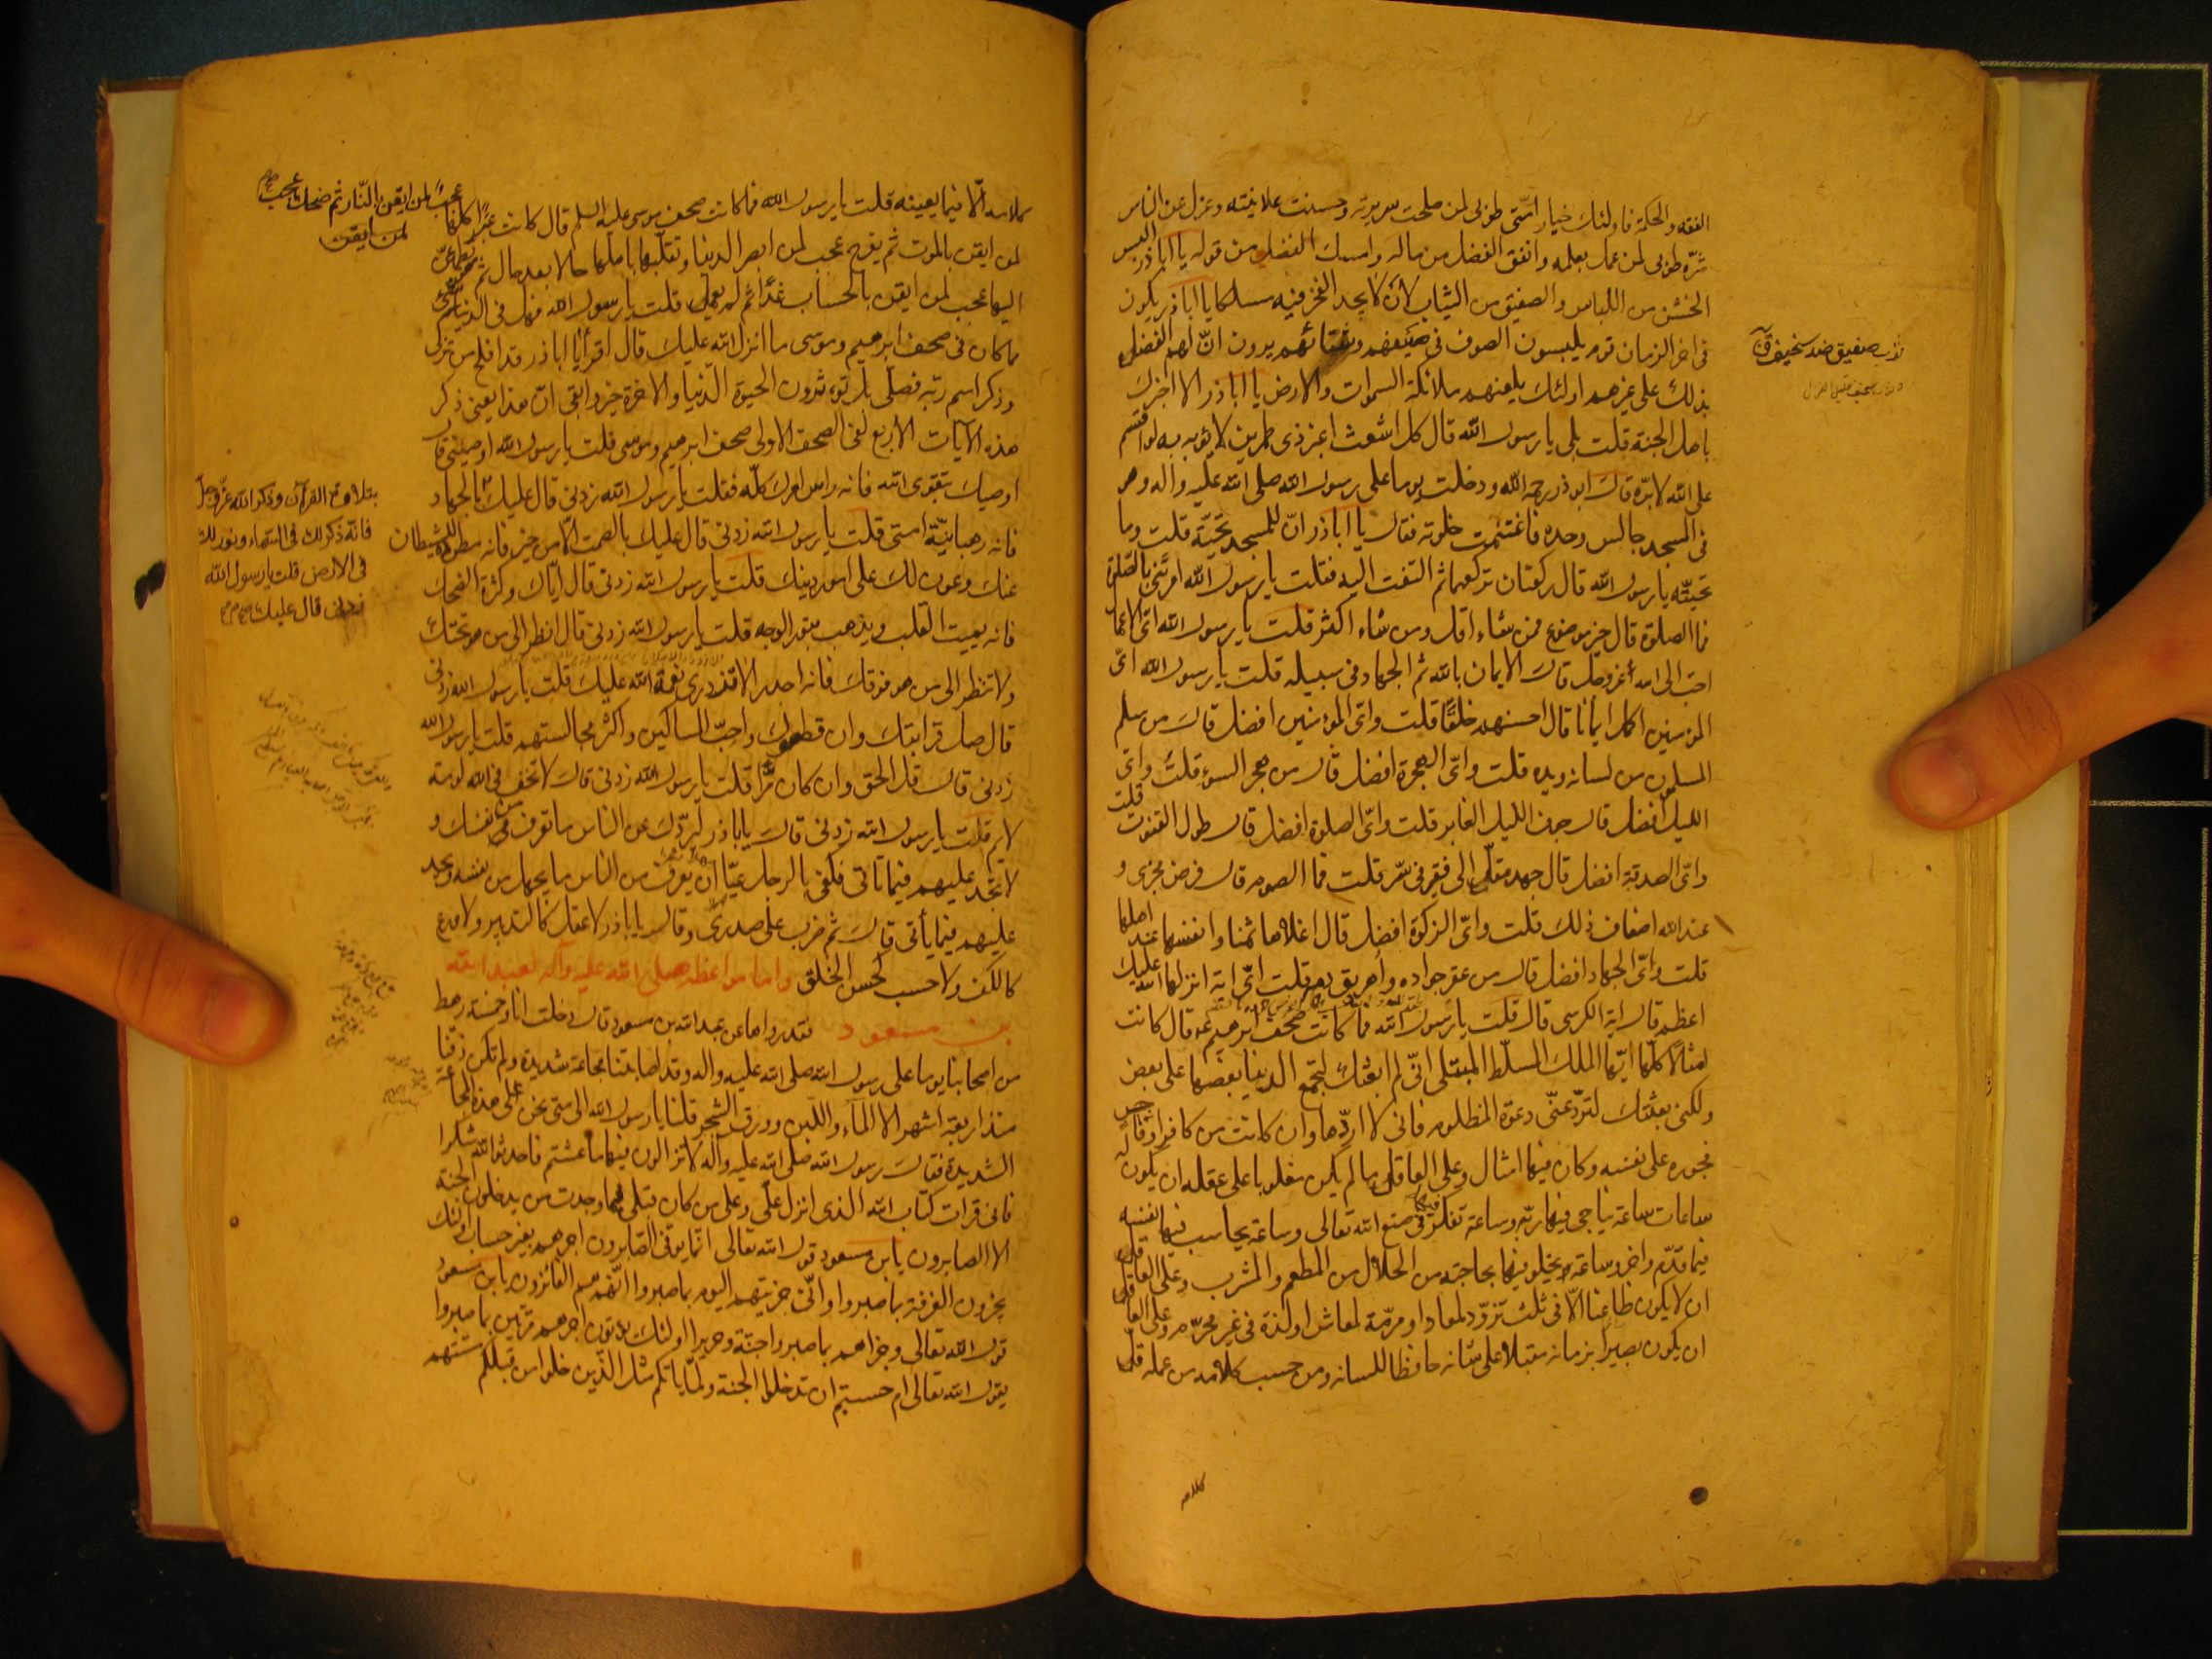 الفقه والحكمة فاولئك خيار امتى طوبى لمن صلحت سريرته وحسنت علانيته وعزل عن الناس
شرّه طوبى لمن عمل بعلمه وانفق الفضل من ماله وامسك الفضل من قوله يا اباذر البس
الخشن من اللباس والصفيق من الثياب لان لا يجد الفخر فيه مسلكا يا اباذر يكون
فى اخر الزمان قوم يلبسون الصوف فى صيفهم وشتائهم يرون انّ لهم الفضل
بذلك على غيرهم اولئك يلعنهم ملائكة السموات والارض يا اباذر الا اخبرك
باهل الجنة قلت بلى يا رسول الله قال كل اشعث اغبر ذى طمرين لا يؤبه به لو اقسم
على الله لابرّه قال ابوذر رحمه الله ودخلت يوما على رسول الله صلى الله عليه واله وهو
فى المسجد جالس وحده فاغتنمت خلوته فقال يا اباذر انّ للمسجد تحيّة قلت وما
تحيّته يا رسول الله قال ركعتان تركعهما ثم التفت اليه فقلت يا رسول الله امرتنى بالصّلوة
فما الصلوة قال خير موضوع فمن شاء اقل ومن شاء اكثر قلت يا رسول الله اىّ الاعمال
احبّ الى الله عزوجل قال الايمان بالله ثم الجهاد فى سبيله قلت يا رسول الله اىّ
المؤمنين اكمل ايمانا قال احسنهم خلقًا قلت واىّ المؤمنين افضل قال من سلم
المسلمون من لسانه ويده قلت واىّ الهجرة افضل قال من هجر السوء قلت واىّ
الليل افضل قال جوف الليل الغابر قلت واىّ الصلوة افضل قال طول القنوت قلت
واىّ الصدقة افضل قال جهد مقلّ الى فقير فى سرّ قلت فما الصوم قال فرض مجزى و
عند الله اضعاف ذلك قلت واىّ الزكوة افضل قال اغلاها ثمنا وانفسها عند اهلها
قلت واىّ الجهاد افضل قال من عقر جواده واهريق دمه قلت اىّ اية انزلها الله عليك
اعظم قال اية الكرسى قال قلت يا رسول الله فما كانت صحف ابرهيم ع قال كانت
امثالا كلّها ايّها الملك المسلّط المبتلى انّى لم ابعثك لتجمع الدنيا بعضها على بعض
ولكنى بعثتك لتردّ عنّى دعوة المظلوم فانى لا اردّها وان كانت من كافر او فاجر
فجوره على نفسه وكان فيها امثال وعلى العاقل ما لم يكن مغلوبا على عقله ان يكون له
ساعات ساعة يناجى فيها ربّه وساعة تفكر فيها فى صنع الله تعالى وساعة يحاسب فيها نفسه
فيما قدّم واخر وساعة يخلو فيها بحاجته من الحلال من المطعم والمشرب وعلى العاقل
ان لا يكون ظاعنا الّا فى ثلث تزوّد لمعاد او مرمّة لمعاش او لذة فى غير محرّم وعلى العاقل
ان يكون بصيرا بزمانه مقبلا على شانه حافظا للسانه ومن حسب كلامه من عمله قلّ
كلامه
ثوب صفيق ضد سخيف ق
كلامه الّا فيما يعينه قلت يا رسول الله فما كانت صحف موسى عليه السلم قال كانت عبرًا كلها
عجبًا لمن ايقن بالنّار ثم ضحك عجب
لمن ايقن
لمن ايقن بالموت ثم يفرح عجب لمن ابصر الدنيا وتقلّبها باهلها حالا بعد حال ثم يطمئنّ
اليها عجب لمن ايقن بالحساب غدًا ثم لم يعمل قلت يا رسول الله فهل فى الدنيا شىء
مما كان فى صحف ابرهيم وموسى مما انزل الله عليك قال اقرأ يا اباذر قد افلح من تزكّى
وذكر اسم ربّه فصلّى بل تؤثرون الحيوة الدّنيا والاخرة خير وابقى انّ هذا يعنى ذكر
هذه الآيات الاربع لفى الصحف الاولى صحف ابرهيم وموسى قلت يا رسول الله اوصينى قال
اوصيك بتقوى الله فانه راس امرك كلّه فقلت يا رسول الله زدنى قال عليك بالجهاد
بتلاوة القرآن وذكر الله عزّوجلّ
فانّه ذكر لك فى السّماء ونور لك
فى الارض قلت يا رسول الله
زدنى قال عليك
فانه رهبانيّة امتى قلت يا رسول الله زدنى قال عليك بالصمت الّا من خير فانه مطردة للشيطان
عنك وعون لك على امور دينك قلت يا رسول الله زدنى قال ايّاك وكثرة الضحك
فانه يميت القلب ويذهب بنور الوجه قلت يا رسول الله زدنى قال انظر الى من هو تحتك
ولا تنظر الى من هو فوقك فانه اجدر الا تزدرى نعمة الله عليك قلت يا رسول الله زدنى
قال صل قرابتك وان قطعوك واحبّ المساكين واكثر مجالستهم قلت يا رسول الله
زدنى قال قل الحق وان كان مرّا قلت يا رسول الله زدنى قال لا تخف فى الله لومة
لائم قلت يا رسول الله زدنى قال يا اباذر ليردّك عن الناس ما تعرف من نفسك و
لا تجد عليهم فيما تاتى فكفى بالرجل عيبًا ان يعرف من الناس ما يجهل من نفسه ويجد
عليهم فيما يأتى قال ثم ضرب على صدرى وقال يا اباذر لا عقل كالتدبير ولا ورع
كالكف ولا حسب كحسن الخلق واما مواعظه صلى الله عليه وآله لعبد الله
بن مسعود فقد رواها عن عبدالله بن مسعود قال دخلت انا وخمسة رهط
من اصحابنا يوما على رسول الله صلى الله عليه واله وقد اصابتنا مجاعة شديدة ولم تكن ذقنا
منذ اربعة اشهر الا المآء واللبن وورق الشجر قلنا يا رسول الله الى متى نحن على هذه المجاعة
الشديدة فقال رسول الله صلى الله عليه وآله لا تزالون فيها ما عشتم فاحدثوا لله شكرا
فانى قرات كتاب الله الذى انزل علىّ وعلى من كان قبلى فما وجدت من يدخلون الجنة
الا الصابرون يابن مسعود قول الله تعالى انّما يوفى الصّابرون اجرهم بغير حساب اولئك
يجزون الغرفة بما صبروا وانّى جزيتهم اليوم بما صبروا انّهم هم الفائزون يابن مسعود
قول الله تعالى وجزاهم بما صبروا جنّة وحريرا اولئك يؤتون اجرهم مرّتين بما صبروا
يقول الله تعالى ام حسبتم ان تدخلوا الجنة ولمّا ياتكم مثل الذّين خلوا من قبلكم مستهم